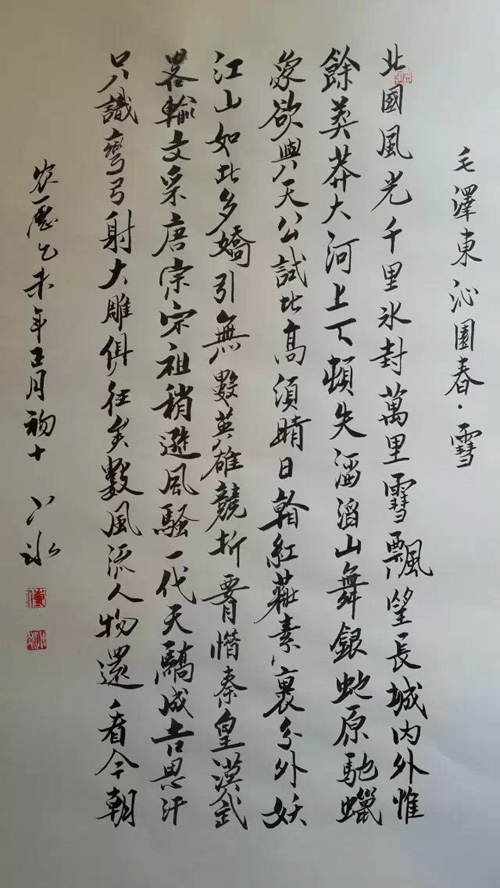 毛澤東沁園春·雪
北國風光千里冰封萬里雪飄望長城內外惟
餘莽莽大河上下頓失滔滔山舞銀蛇原馳蠟
象欲與天公試比高須晴日看紅裝素裹分外妖
江山如此多嬌引無數英雄競折腰惜秦皇漢武
略輸文采唐宗宋祖稍遜風騷一代天驕成吉思汗
只識彎弓射大雕俱往矣數風流人物還看今朝
农歷乙未年正月初十
冰